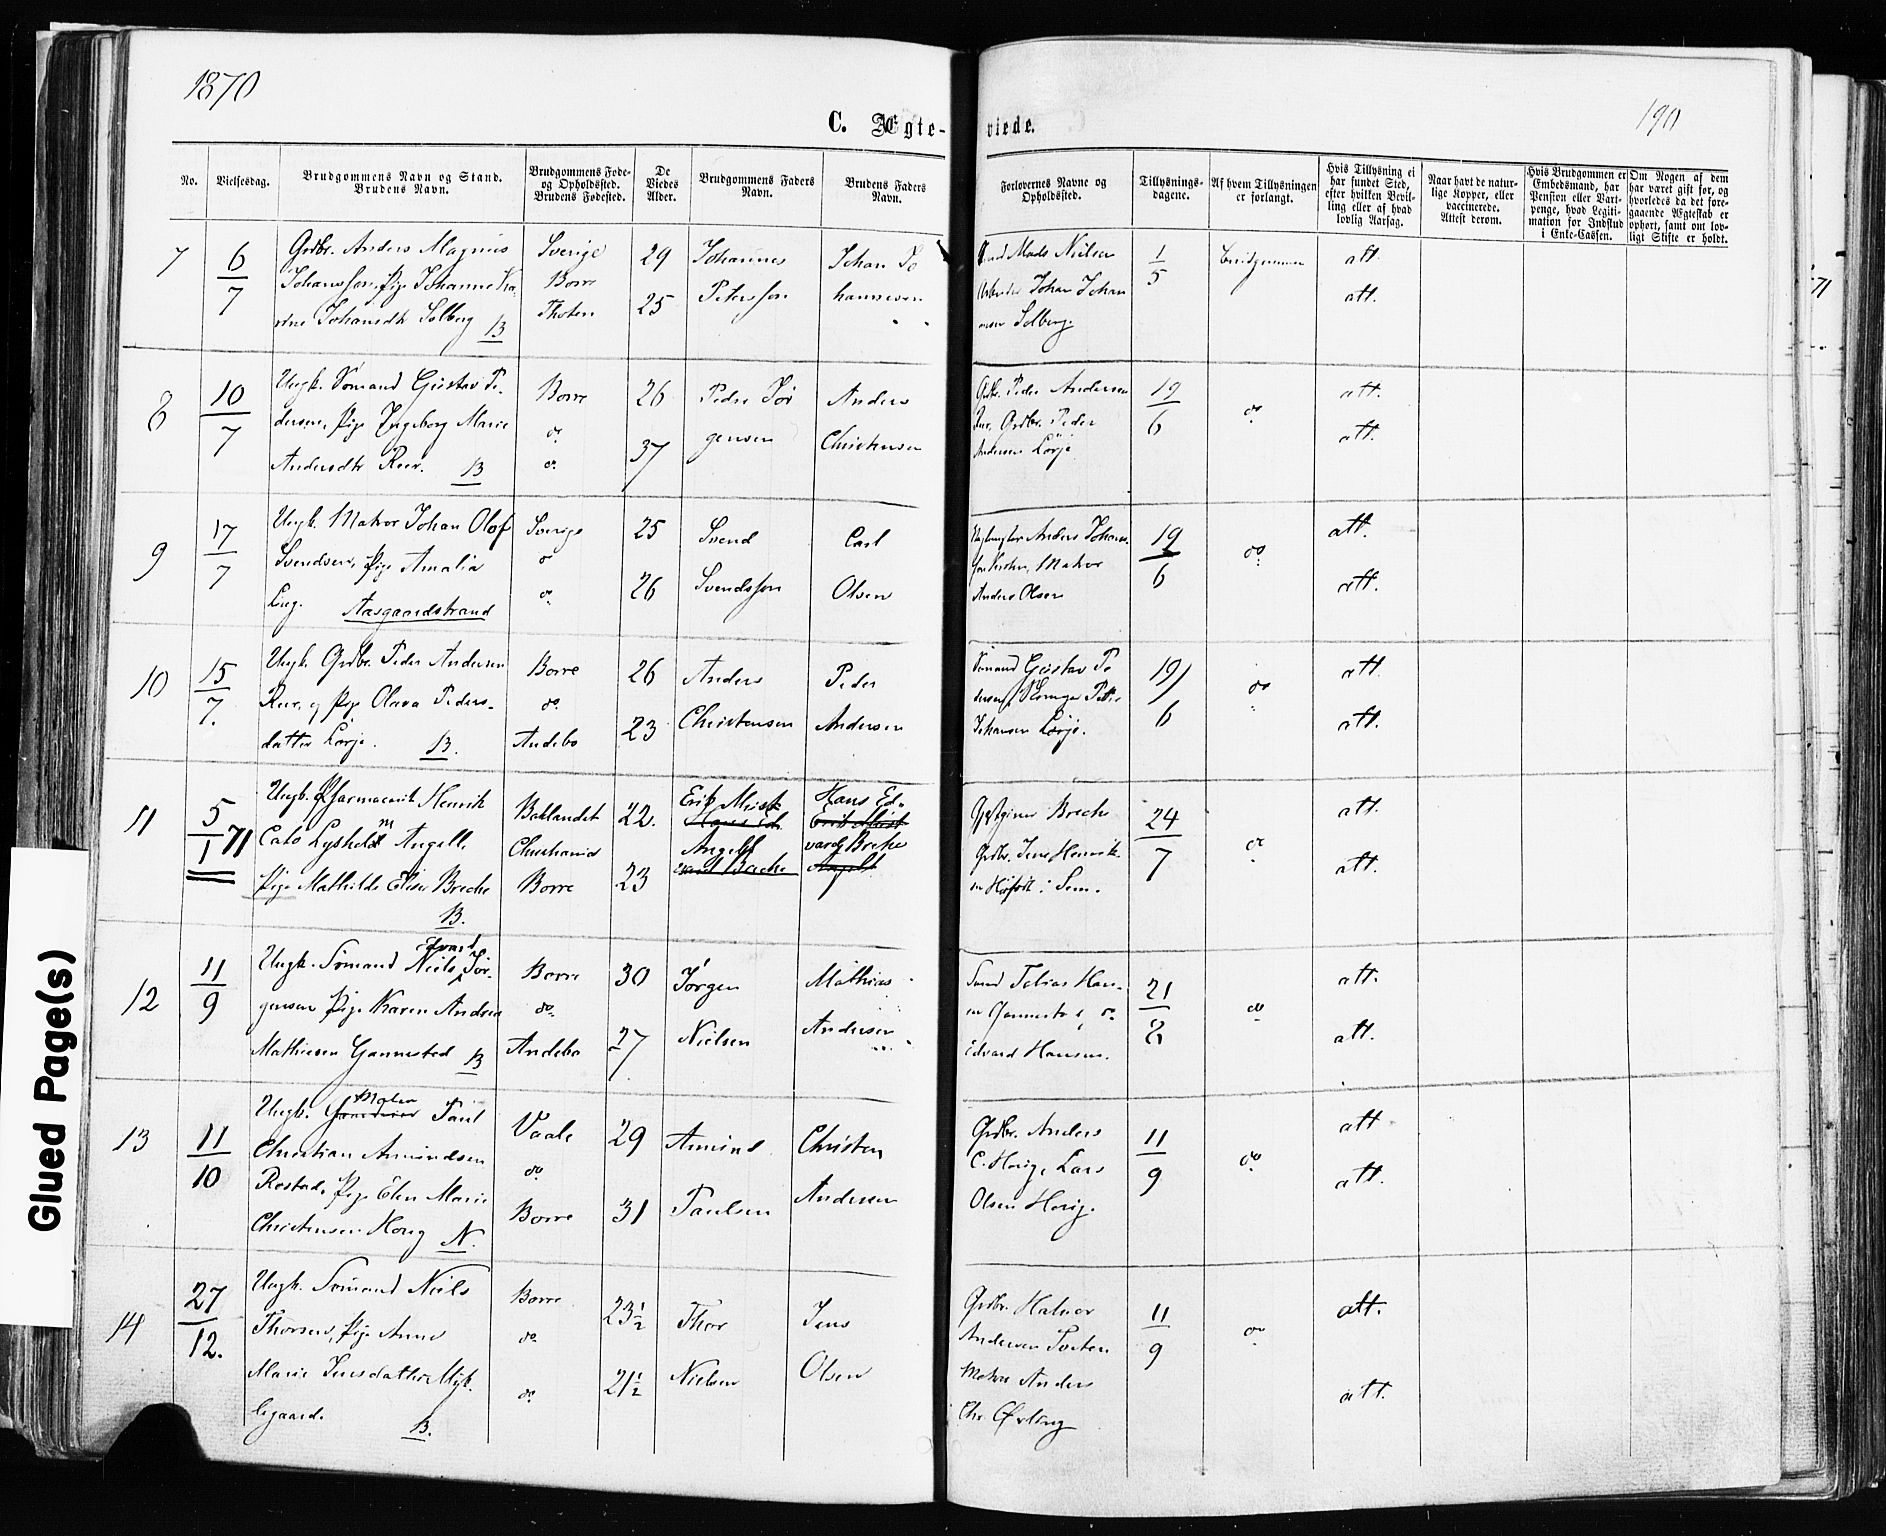 1870
190
C. Ægte-
viede.
No.
Vielsesdag.
Brudgommens Navn og Stand.
Brudens Navn.
Brudgommens Føde-
og Opholdssted.
Brudens Fødested.
De
Viedes
Alder.
Brudgommens Faders
Navn.
Brudens Faders
Navn.
Forlovernes Navne og
Opholdssted.
Tillysnings-
dagene.
Af hvem Tillysningen
er forlangt.
Hvis Tillysning ei
har fundet Sted,
efter hvilken Bevil-
ling eller af hvad
lovlig Aarsag.
Naar havt de natur-
lige Kopper, eller
vaccinerede.
Attest derom.
Hvis Brudgommen er
Embedsmand, har
Pension eller Vart-
penge, hvad Legiti-
mation for Indskud
i Enke-Cassen.
Om Nogen af dem
har været gift før, og
hvorledes da det fore-
gaaende Ægteskab er
ophørt, samt om lov-
ligt Skifte er holdt.
7
6
7
Grdbr. Anders Magnus
Johansson, Pige Johanne Ka-
rine Johansdtr Solberg B
Sverige
Borre
Thoten
29
25
Johannes
Petersson
Johan Jo
hannesen
Mads Nielsen
Johan Johan
nesen Solberg.
1
5
Brudgommen
att.
att.
8
10
7
Ungk. Sømand Gustav Pe-
dersen, Pige Ingeborg Marie
Andersdtr Rør. B
Borre
do
do
26
37
Peder Jør
gensen
Anders
Christensen
Grdbr. Peder Andersen
Rør, Grdbr. Peder
Andersen Lørje
19
6
do
att.
att.
9
17
7
Ungk. Matros Johan Olof
Svendsen, Pige Amalia
Aasgaardstrand
Sverige
do
do
25
26
Svend
Svendsson
Carl
Olsen
Anders Johans-
Matros
Anders Olsen
19
6
do
att.
att.
10
15
7.
Ungk. Grdbr. Peder Andersen
Rør, og Pige Olava Peders-
datter Lørje. B.
Borre
do
Andebo
26
23
Anders
Christensen
Peder
Andersen
Sømand Gustav Pe
dersen,
Johansen Lørje.
19
6
do
att.
att.
11
5
1 71
Ungk. Pharmaceut Henrik
Cato Lysholm Angell,
Pige Mathilde Elise Breche
B.
Baklandet
Christiania
Borre
22.
23
Erik Must
Hans Ed
Angell
vard Breche
Hans Ed-
Erik Must
vard Breche
Angell
Gjestgiver Breche
Grdbr. Jens Henrik-
i Sem.
24
7
do
att.
att.
12
11
9
Edvard
Ungk. Sømand Niels Jør-
gensen Pige Karen Andrea
Mathiesen Gannested B
Borre
do
Andebo
30
27
Jørgen
Nielsen
Mathias
Andersen
Tobias Han-
Edvard Hansen.
21
8
do
att.
att.
13
11
10
Matros
Ungk. Paul
Christian Amundsen
Rostad, Pige Elen Marie
Christensen Horg N.
Vaale
do
Borre
29
31
Amund
Paulsen
Christen
Andersen
Grdbr. Anders
C. Horge, Lars
Olsen Horge.
11
9
do
att
att.
14
27
12.
Ungk. Sømand Niels
Thorsen, Pige Anne
Marie Jensdatter Myk-
legaard. B.
Borre
do
do
23½
21½
Thor
Nielsen
Jens
Olsen
Grdbr. Halvor
Andersen
Matros Anders
Chr.
11
9
do
att.
att.
71
Glued Page(s)